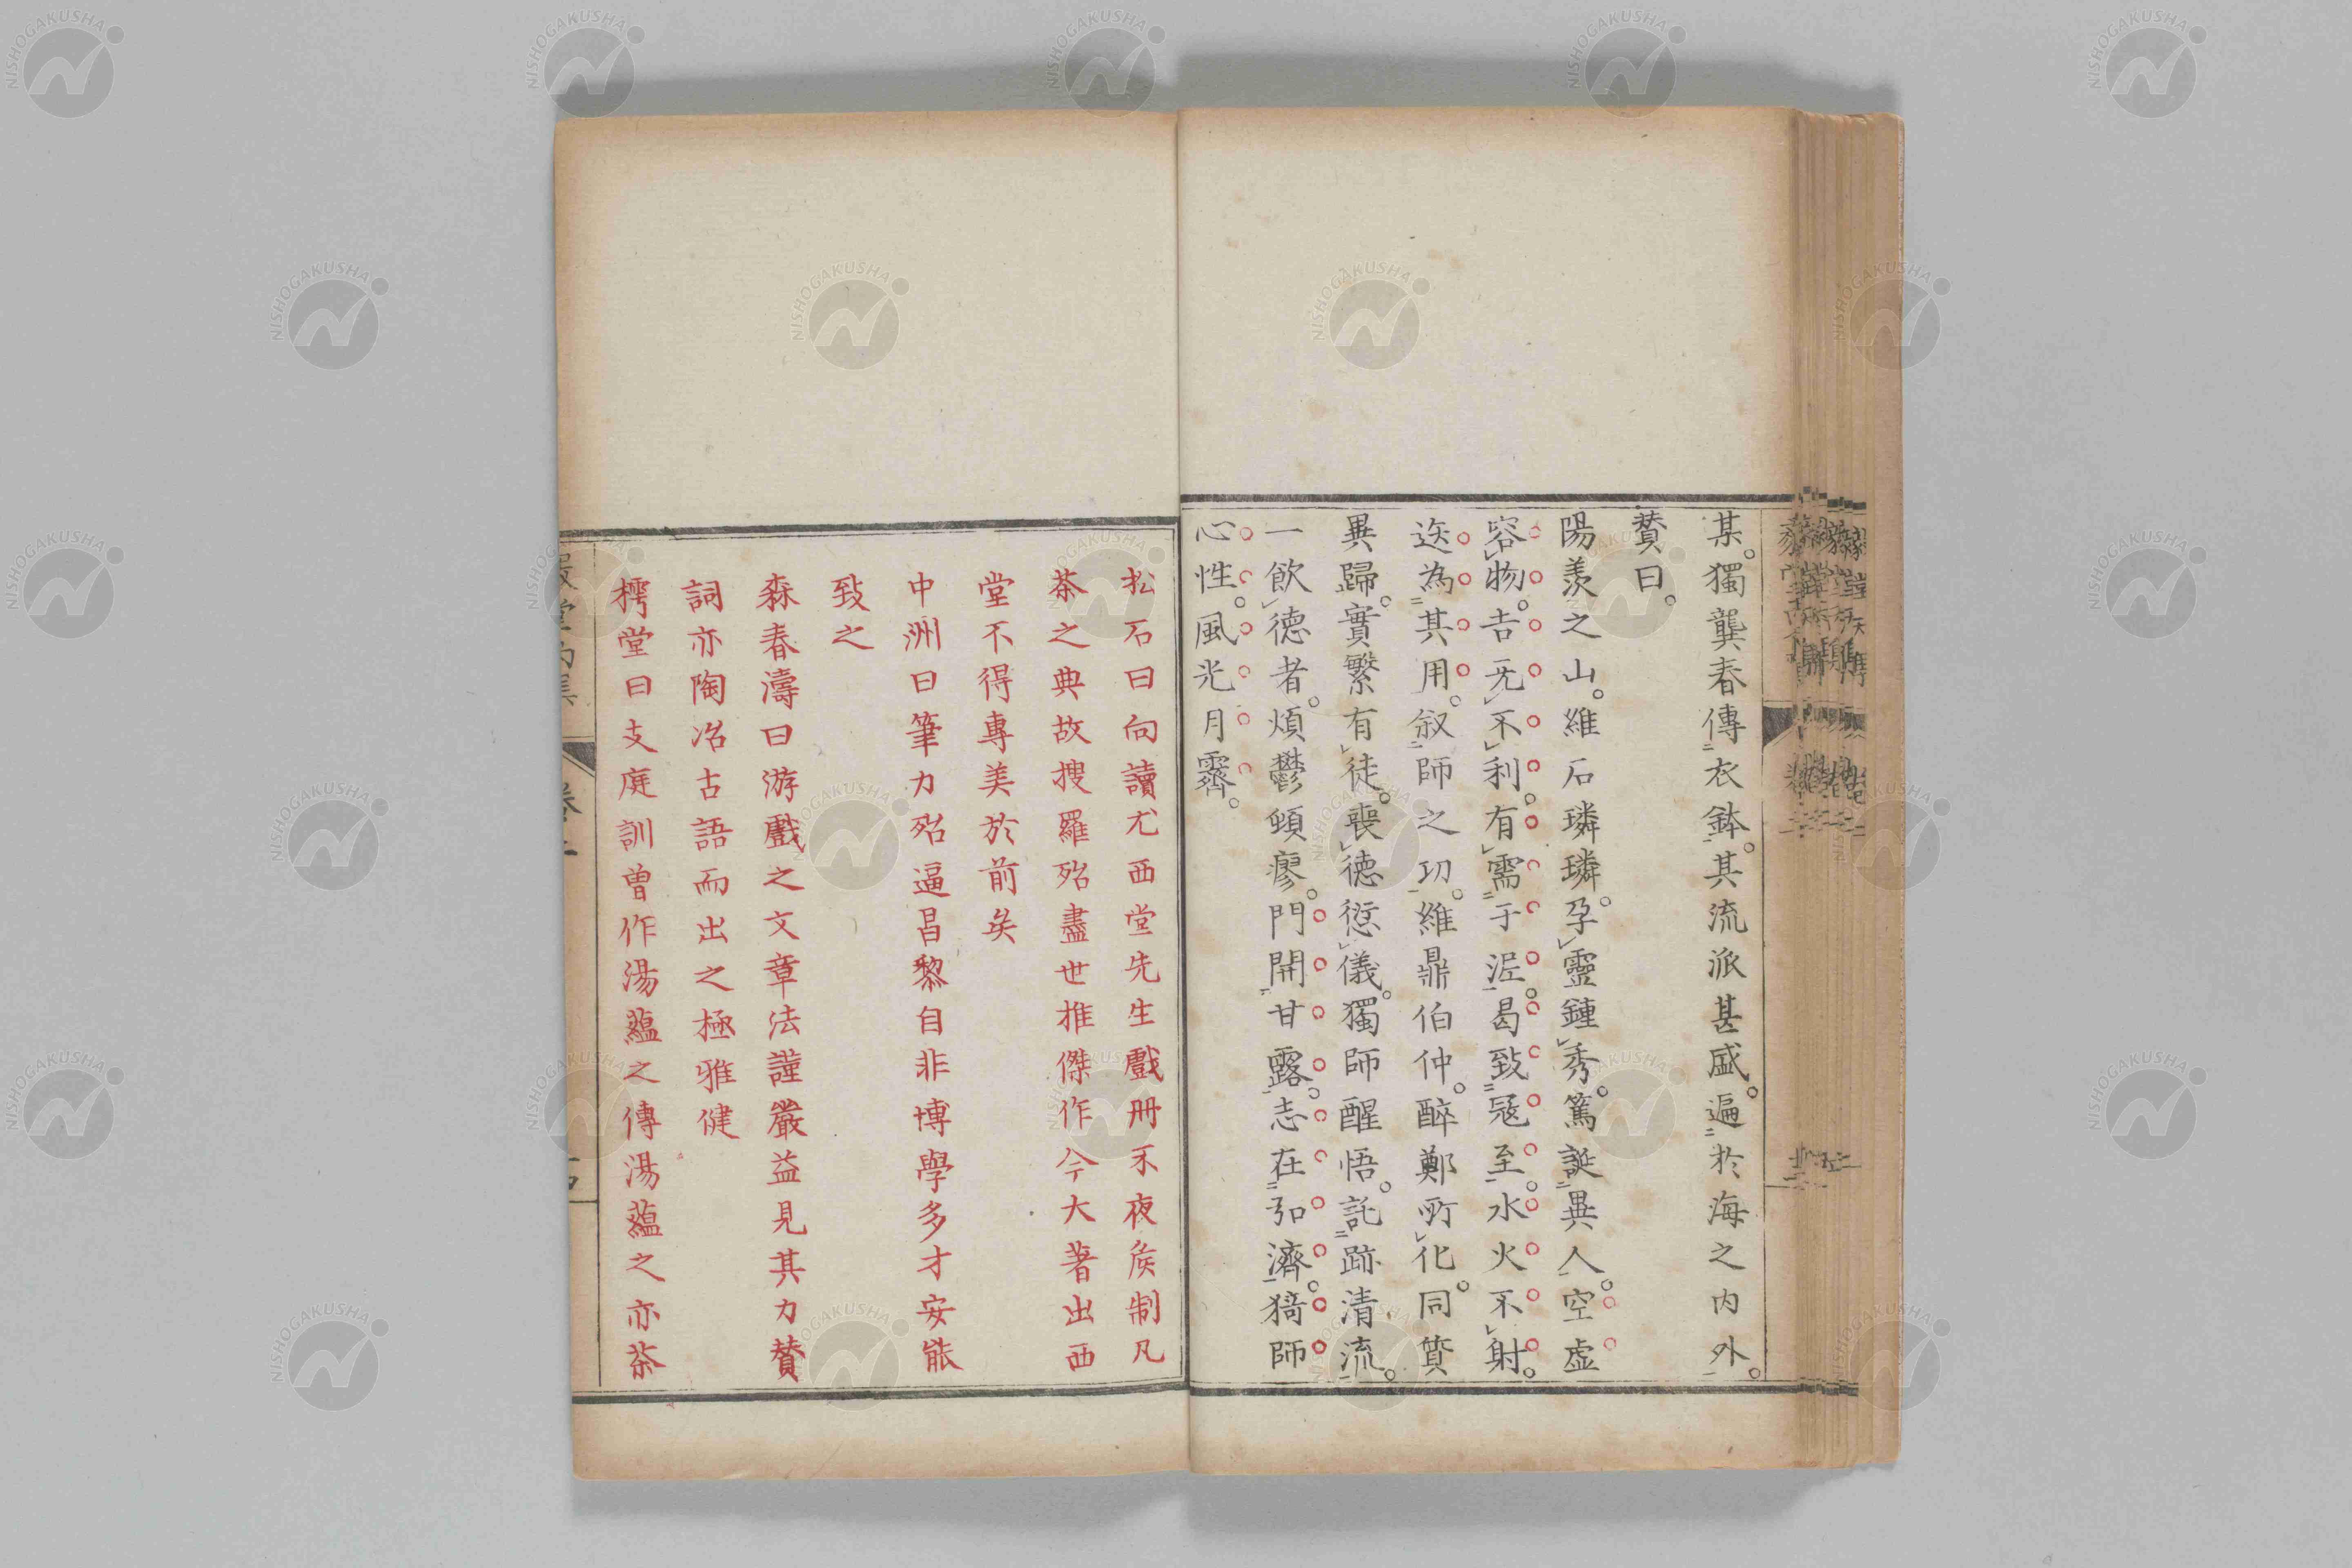 某。獨龔春傳衣鉢。其流派甚盛。遍於海之内外。
賛曰。
陽羨之山。維石璘璘。孕靈鍾秀。篤誕異人。空虚
容物。吉无不利。有需于泥。曷致寇至。水火不射。
迭為其用。叙師之功。維鼎伯仲。醉鄭所化。同貲
異歸。實繁有徒。喪德愆儀。獨師醒悟。託跡清流。
一飲德者。煩鬱頓瘳。門開甘露。志在弘濟。猗師
心性。風光月霽。
松石曰向讀尤西堂先生戲冊不夜矦制凡
茶之典故搜羅殆盡世推傑作今大著出西
堂不得專美於前矣
中洲曰筆力殆逼昌黎自非博學多才安能
致之
森春濤曰游戲之文章法謹嚴益見其力賛
詞亦陶冶古語而出之極雅健
樗堂曰支庭訓曾作湯蘊之傳湯蘊之亦茶
NISHOGAKUSHA